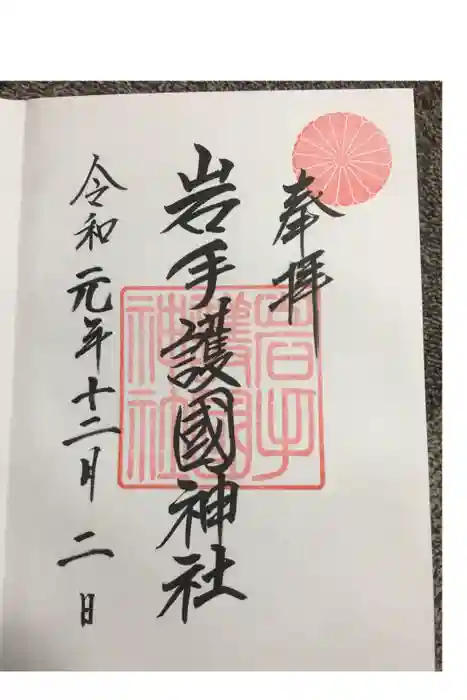 奉拝
岩手護國神社
岩手護國神社
令和元年十二月二日